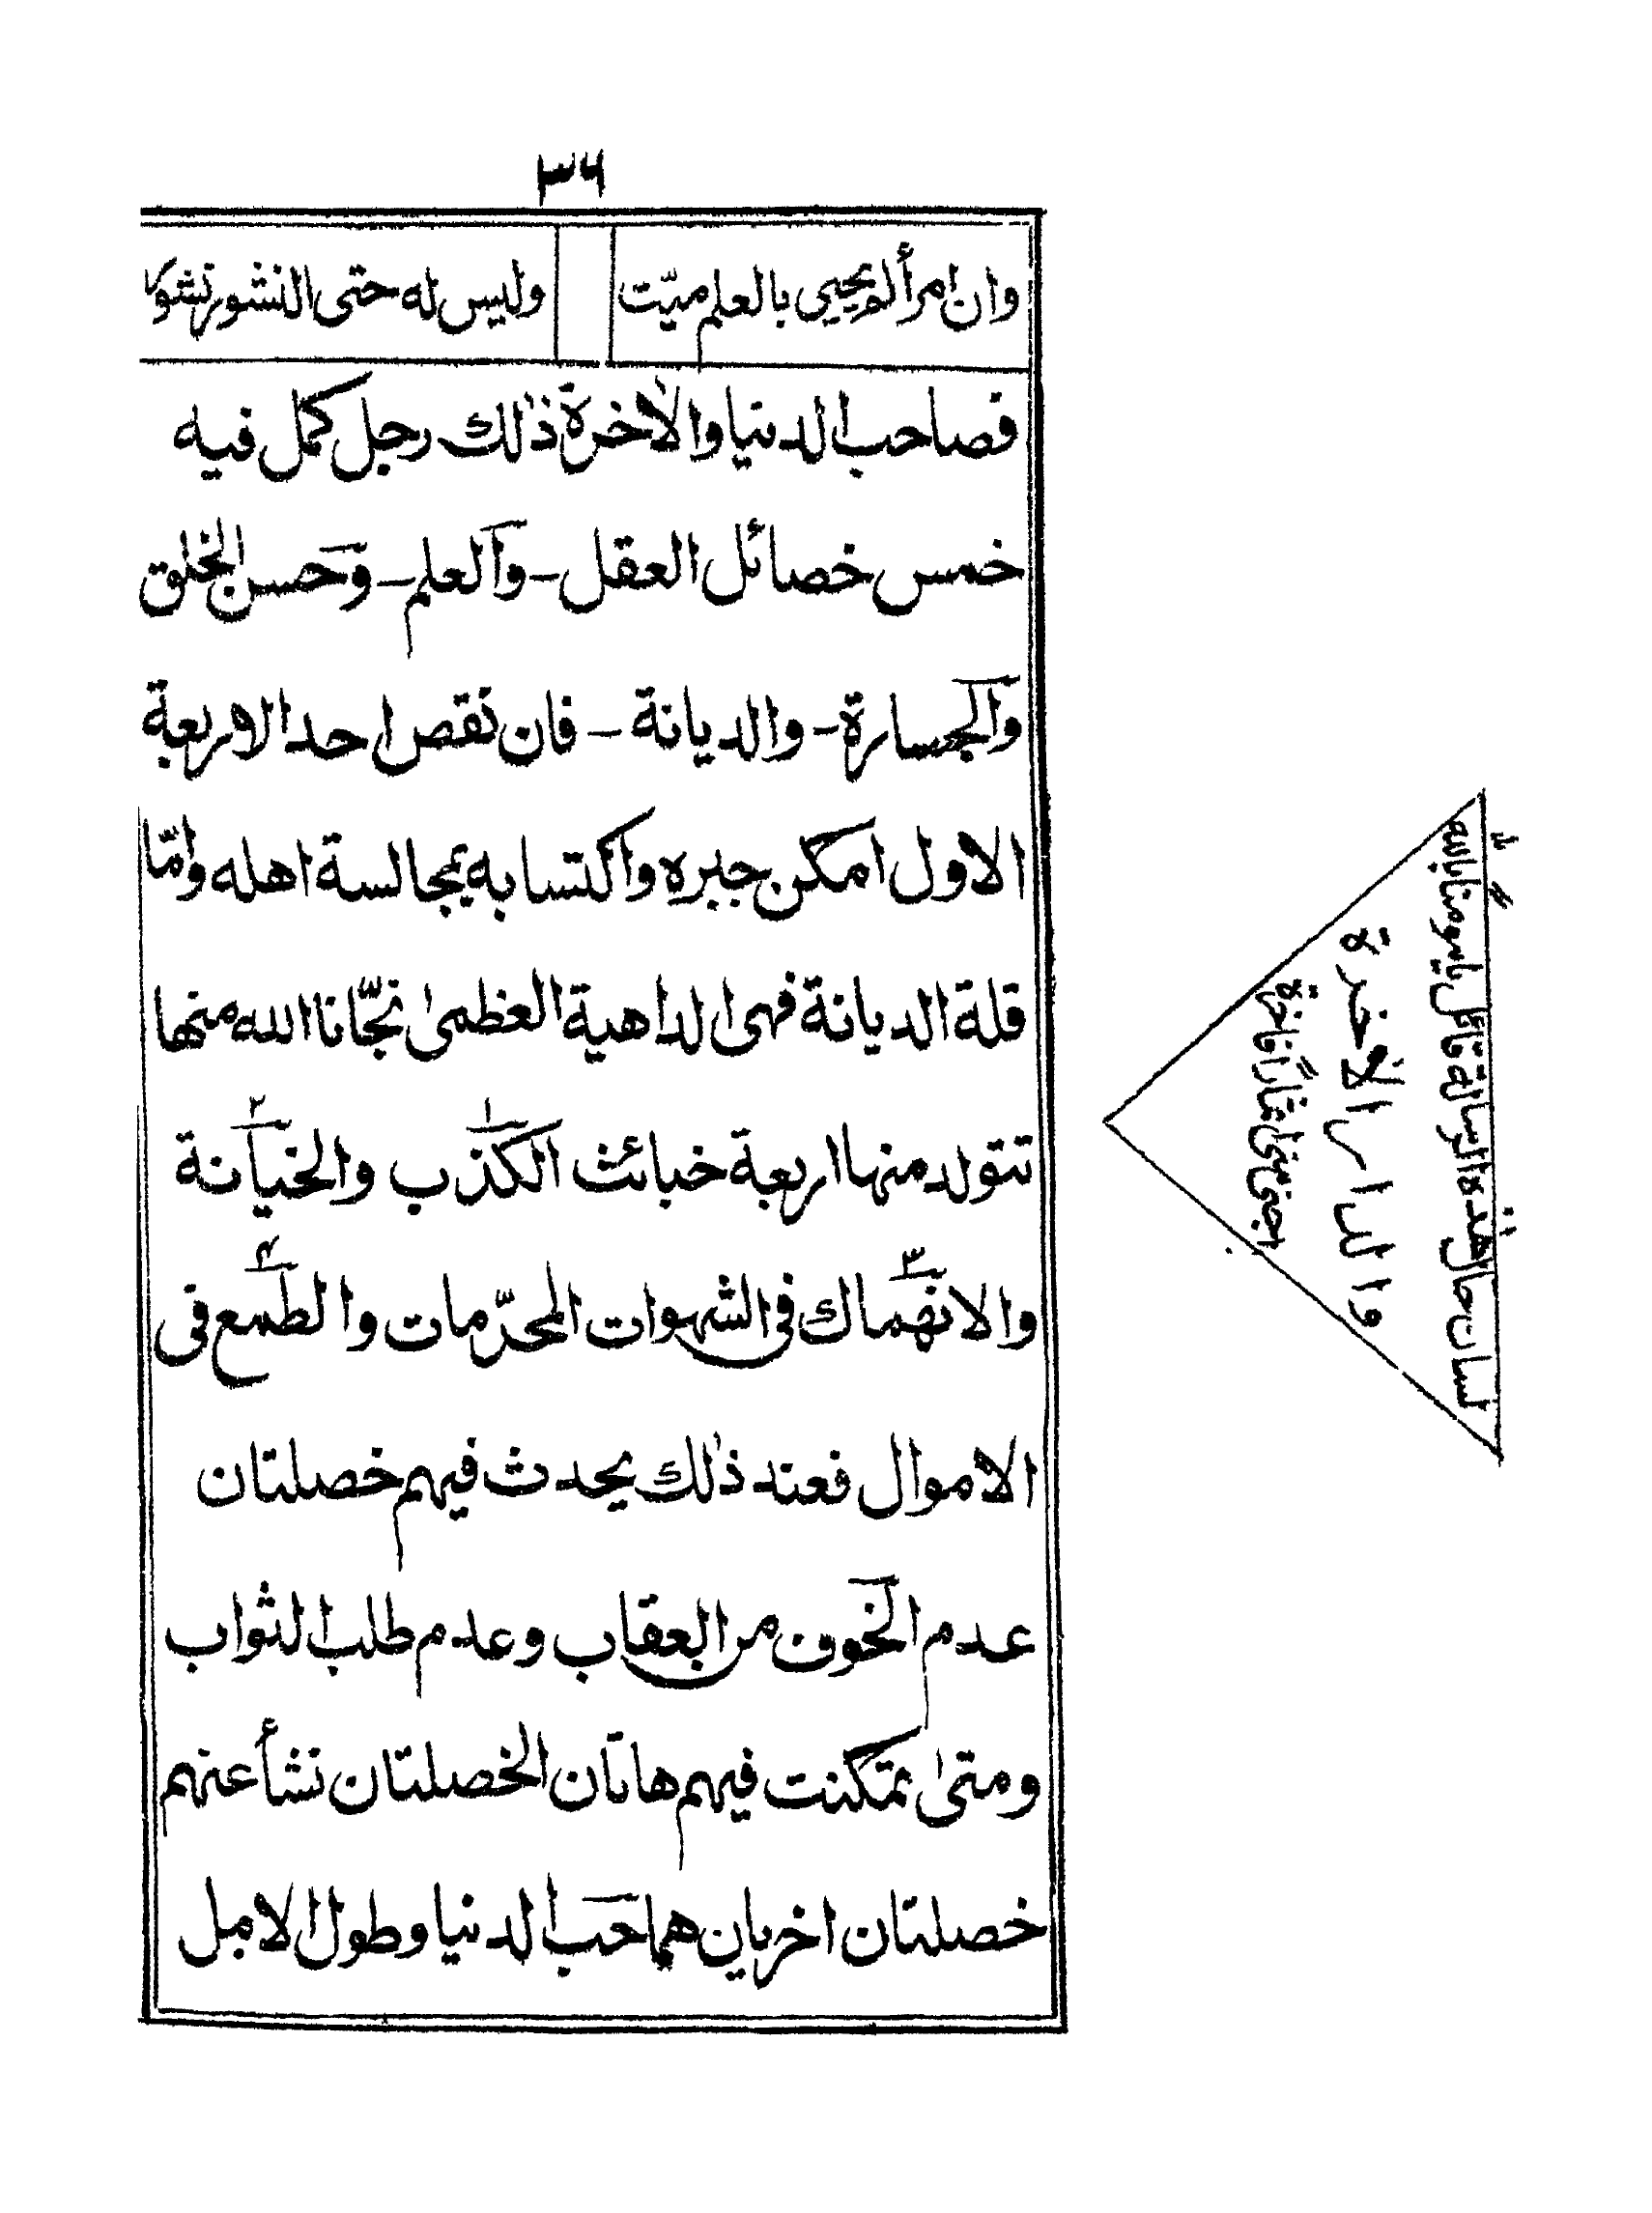 ٣٦
وان امرألم يحيي بالعلم ميّت وليس له حتى النشور نشور
فصاحب الدنيا والاٰخرة ذٰلك رجل كمل فيه
خمس خصائل العقل - والعلم - وحسن الخلق
والجسارة - والديانة - فان نقص احد الاربعة
الاول امكن جبره واكتسابه بمجالسة اهله وامّا
قلة الديانة فهى الداهية العظمىٰ نجّانا الله منها
تتولد منها اربعة خبائث الكذب ١ والخيانة ٢
والانهماك ٣ فى الشهوات المحرّمات والطمع ٤ فى
الاموال فعند ذٰلك يحدث فيهم خصلتان
عدم الخوف من العقاب وعدم طلب الثواب
ومتىٰ تمكنت فيهم هاتان الخصلتان نشأ عنهم
خصلتان اخريان هما حب الدنيا وطول الامل
والدار الاٰخرة